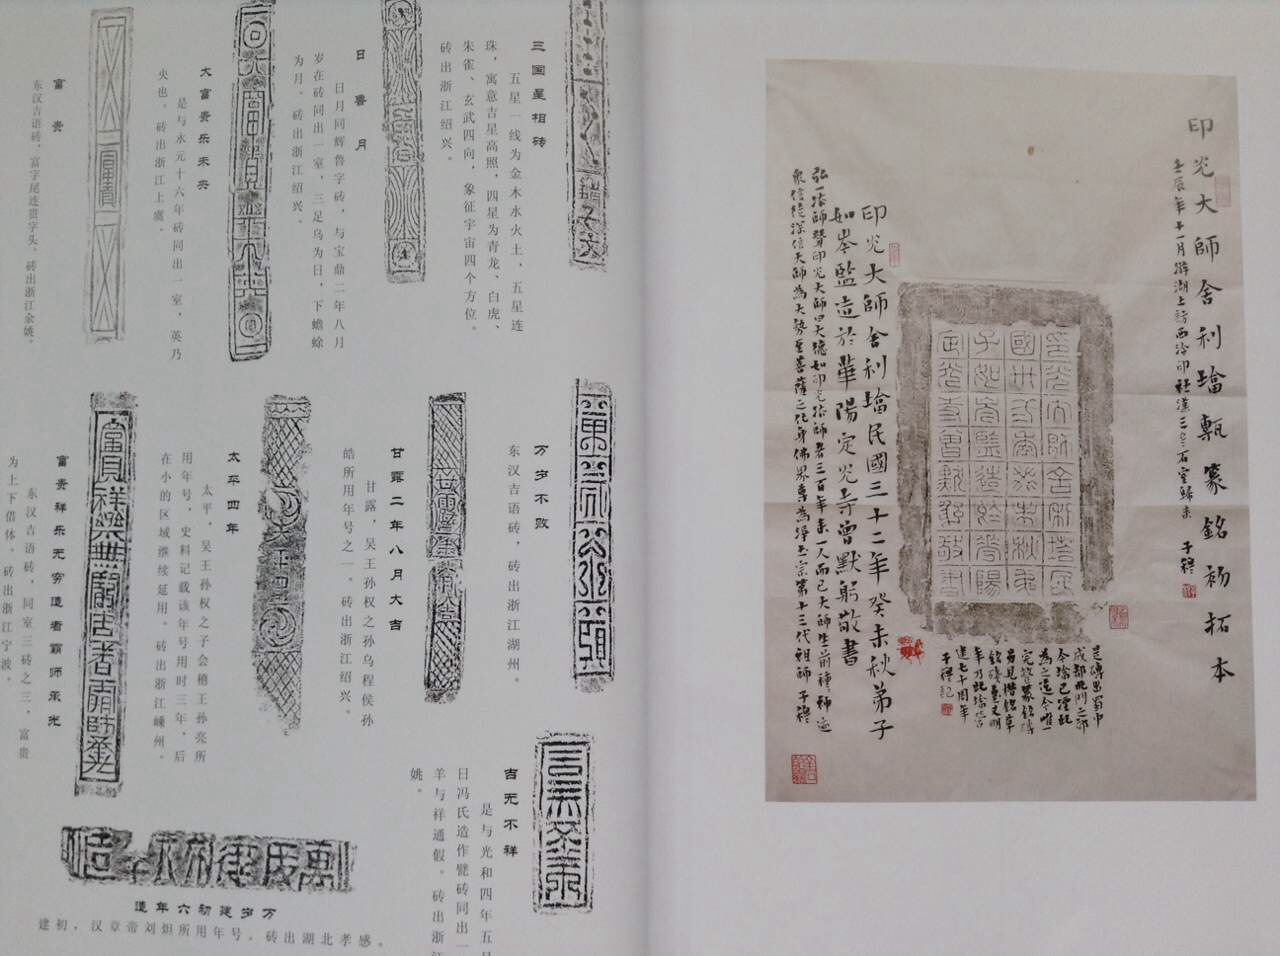 三国星相砖
五星一线为金木水火土，五星连
珠，寓意吉星高照，四星为青龙、白虎、
朱雀、玄武四向，象征宇宙四个方位。
砖出浙江绍兴。
日鲁月
日月同辉鲁字砖，与宝鼎二年八月
岁在砖同出一室，三足乌为日，下蟾蜍
为月。砖出浙江绍兴。
大富贵乐未央
是与永元十六年砖同出一室，英乃
央也。砖出浙江上虞。
富贵
东汉吉语砖，富字尾连贵字头。砖出浙江余姚。
万岁不败
东汉吉语砖，砖出浙江湖州。
甘露二年八月大吉
甘露，吴王孙权之孙乌程侯孙
皓所用年号之一。砖出浙江绍兴。
太平四年
太平，吴王孙权之子会稽王孙亮所
用年号，史料记载该年号用时三年，后
在小的区域继续延用。砖出浙江嵊州。
富贵祥乐无穷造者霸师荣光
东汉吉语砖，同室三砖之三，富贵
为上下借体。砖出浙江宁波。
吉无不祥
是与光和四年五月
日冯氏造作甓砖同出一
羊与祥通假。砖出浙江
姚。
万岁建初六年造
建初，汉章帝刘炟所用年号。砖出湖北孝感。
印光大師舍利塔甎篆銘初拓本
壬辰年十一月游湖上訪西泠印社漢三老石室歸來 子穆
印光大師舍利塔民國三十二年癸未秋弟子
如岑監造於華陽定光寺曾默躬敬書
弘一法師贊印光大師曰大德如印光法師者三百年來一人而已大師生前種種
衆信徒深信大師為大勢至菩薩之化身佛界尊為淨土宗第十三代祖師 子穆
是磚出蜀中
成都北門
年乃此塔
進七十周年
子穆記